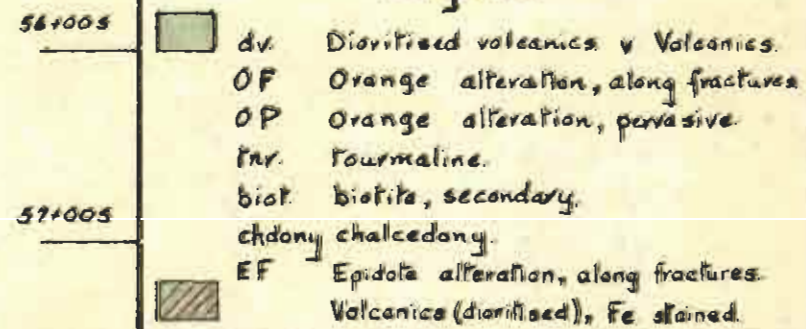 56+00S
dv. Dioritised volcanics v Volcanics.
OF Orange alteration, along fractures
OP Orange alteration, pervasive.
tnr. tourmaline.
biot. biotite, secondary.
57+00S
chdony chalcedony.
EF Epidote alteration, along fractures.
Volcanics (dioritised), Fe stained.